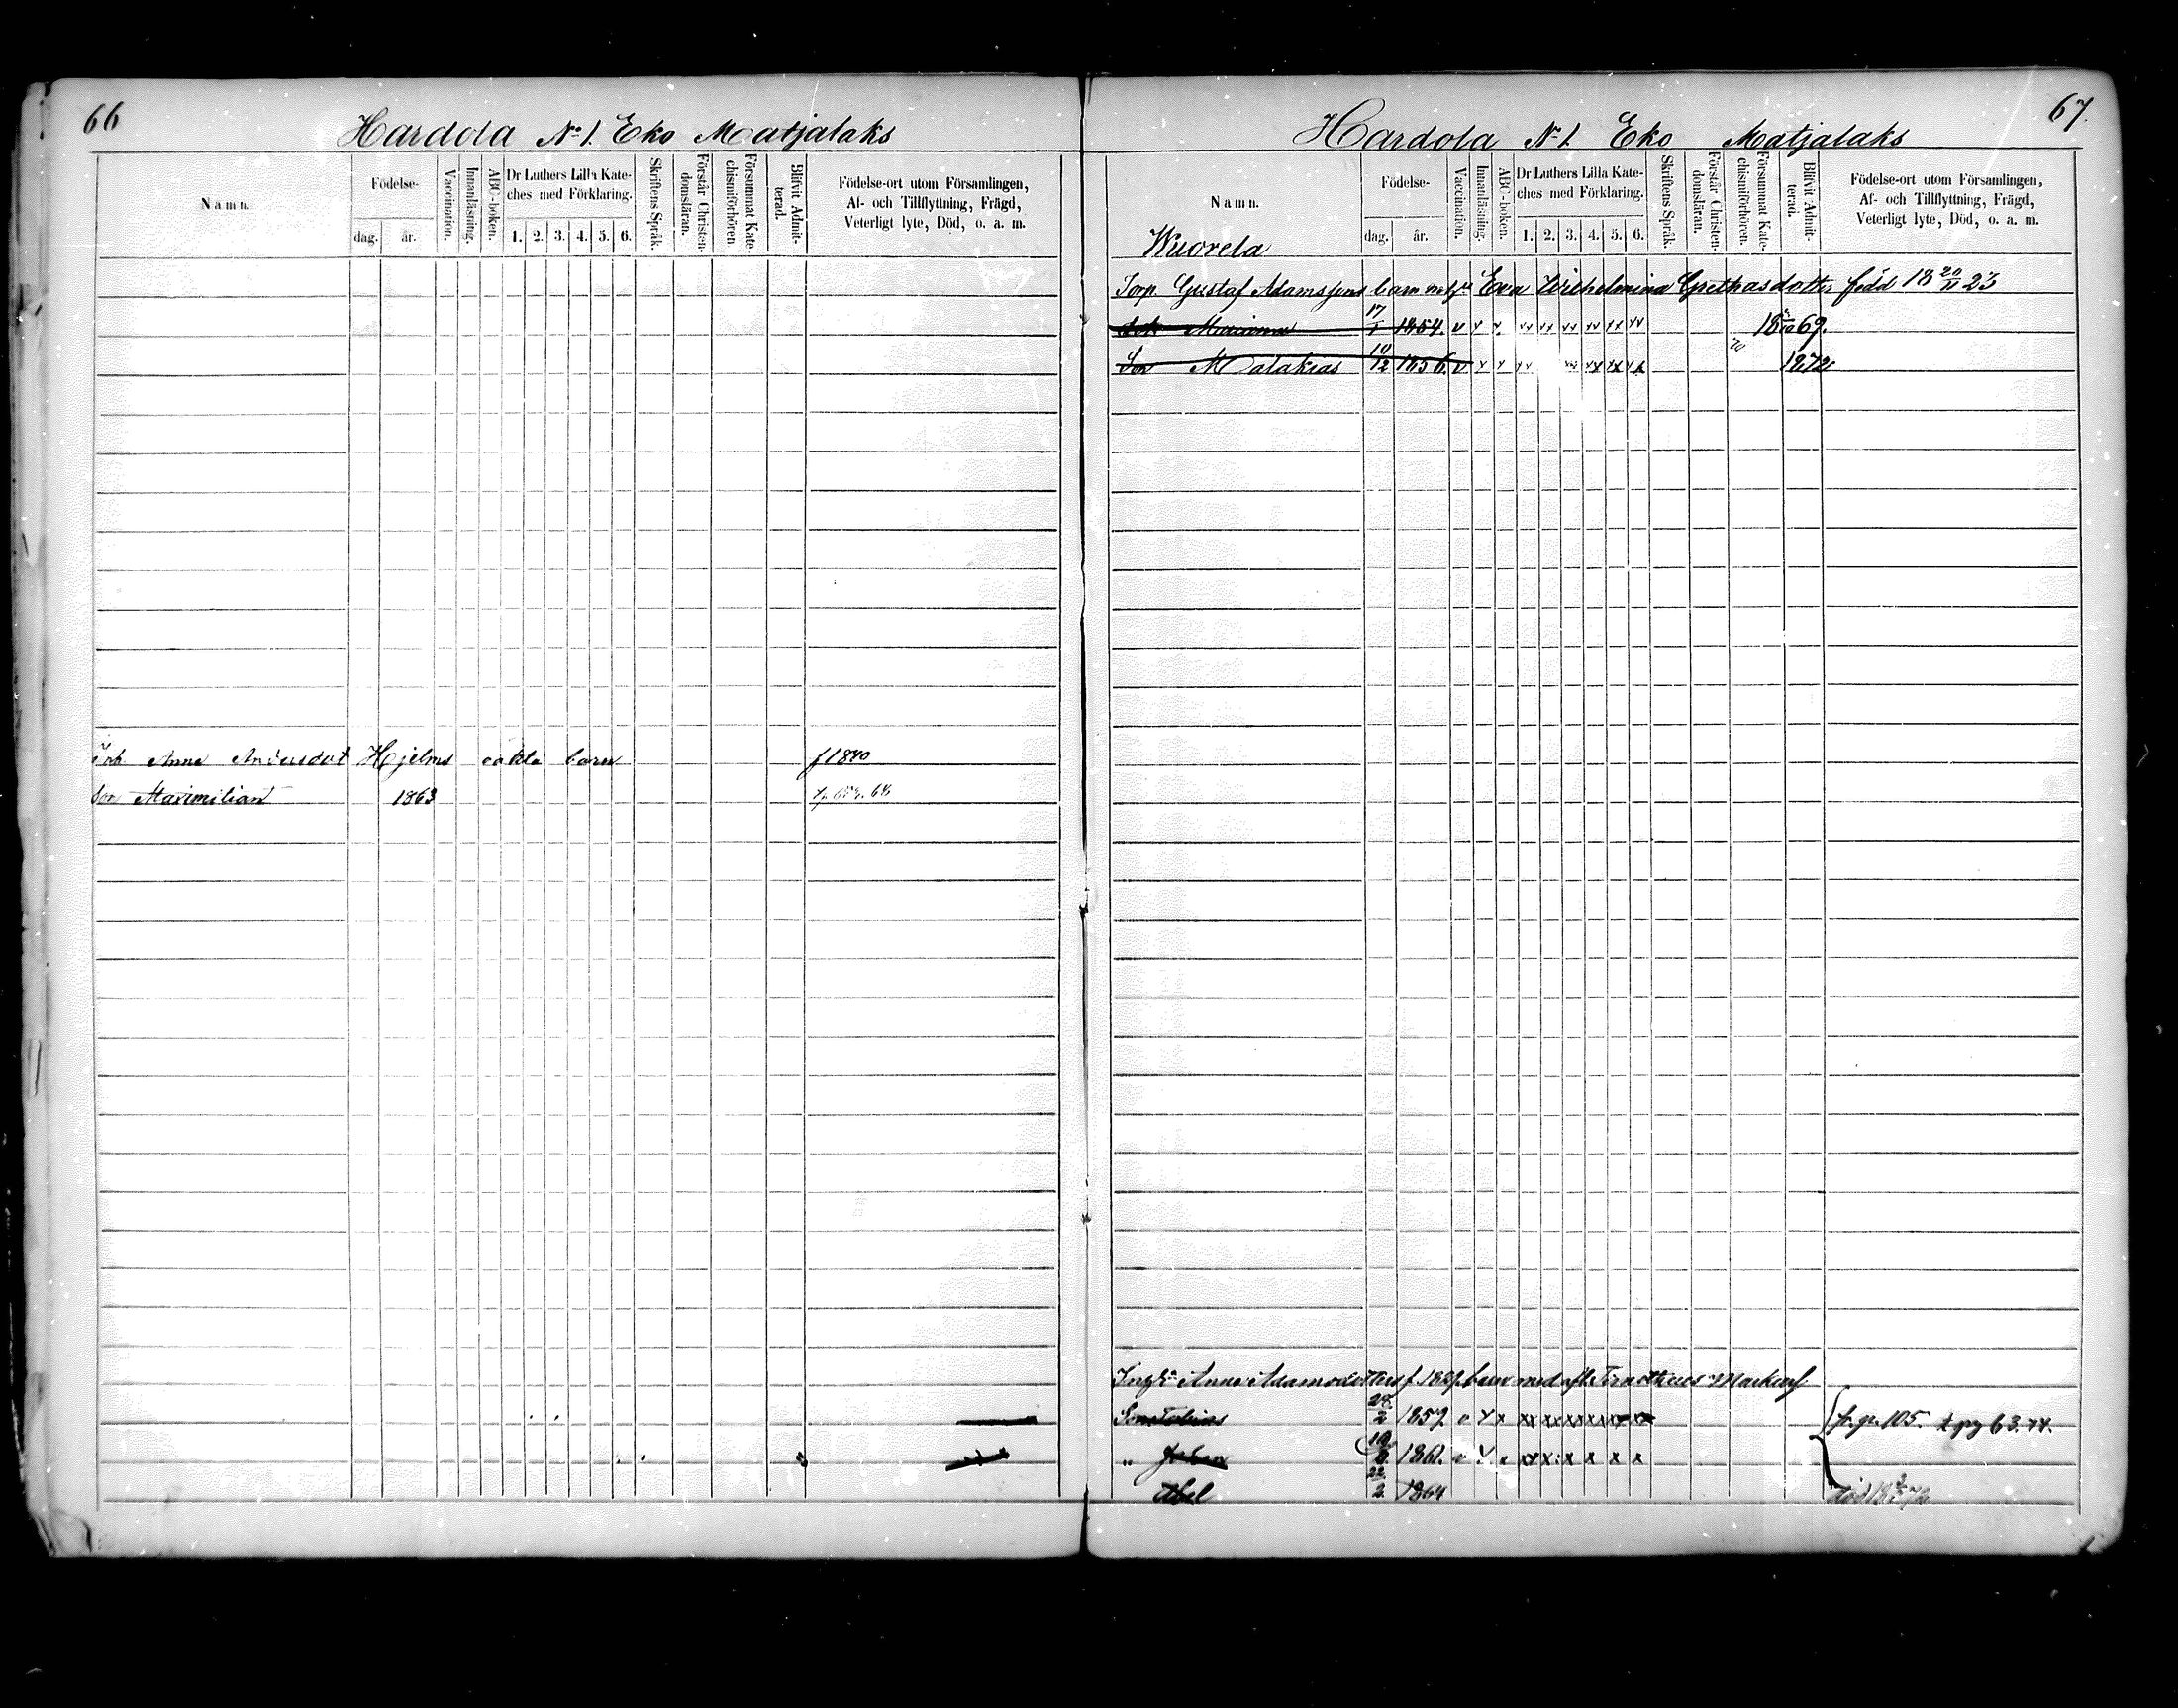 66
Hardola No 1. Eko Matjalaks
Namn.
Födelse-
dag.
år.
Vaccination.
Innanläsning.
ABC-boken.
Dr Luthers Lilla Kate-
ches med Förklaring.
1. 2. 3. 4. 5. 6.
Skriftens Språk.
Förstår Christen-
domsläran.
Försummat Kate-
chismiförhören
Blifvit Admit-
terad.
Födelse-ort utom Församlingen,
Af- och Tillflyttning, Frägd,
Veterligt lyte, Död, o. a. m.
Anna Hjelms oäkta barn f 1840
Son Maximilian 1863
67.
Hardola No 1. Eko Matjalaks
Namn.
Födelse-
dag.
år.
Vaccination.
Innanläsning.
ABC-boken.
Dr Luthers Lilla Kate-
ches med Förklaring.
1. 2. 3. 4. 5. 6.
Skriftens Språk.
Förstår Christen-
domsläran.
Försummat Kate-
chismiförhören.
Blifvit Admit-
terad.
Födelse-ort utom Församlingen,
Af- och Tillflyttning, Frägd,
Veterligt lyte, Död, o. a. m.
Wuorela
Torp. Gustaf Adamssons barn Eva Wilhelmina Grethasdotter född 18 20/11 23
17/1 1854. v 69.
Son Malakias 11/2 1856. v 1872
Anna Adamsdotters barn med Timotheus
Son Tobias 28/2 1857. v pg. 105. t pg 63. 74.
" 1861. v
Abel 22/2 1864